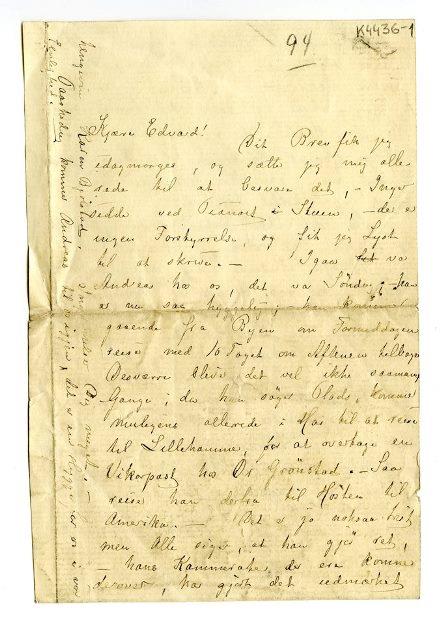 K4436-1
94
Kjære Edvard!
Dit Brev fik jeg
idagmorges, og sætte jeg mig alle-
rede til at besvare det, - Inger
sidde ved Pianoet i Stuen, - de e
ingen Forstyrrelse, og fik jeg Lyst
til at skrive. - Igaar va
Andreas hos os, det va Søndag, - han
e nu saa hyggelig, - han
gaaende fra Byen om Formiddagen
reise med 10 Toget om Aftenen tilbage
Desværre blive det vel ikke saa mang
Gange, da han søger Plads, komme
muligens allerede i Mai til at reise
til Lillehamme, for at overtage en
Vikarpost hos Dr Grönstad. - Saa
reise han derfra til Høsten til
Amerika. - Det e jo noksaa trist
men Alle siger, at han gjør ret,
- hans Kammerater, de ere komne
derover, ha gjort det udmærket
Paaskedag komme Andreas til os igjen, det e